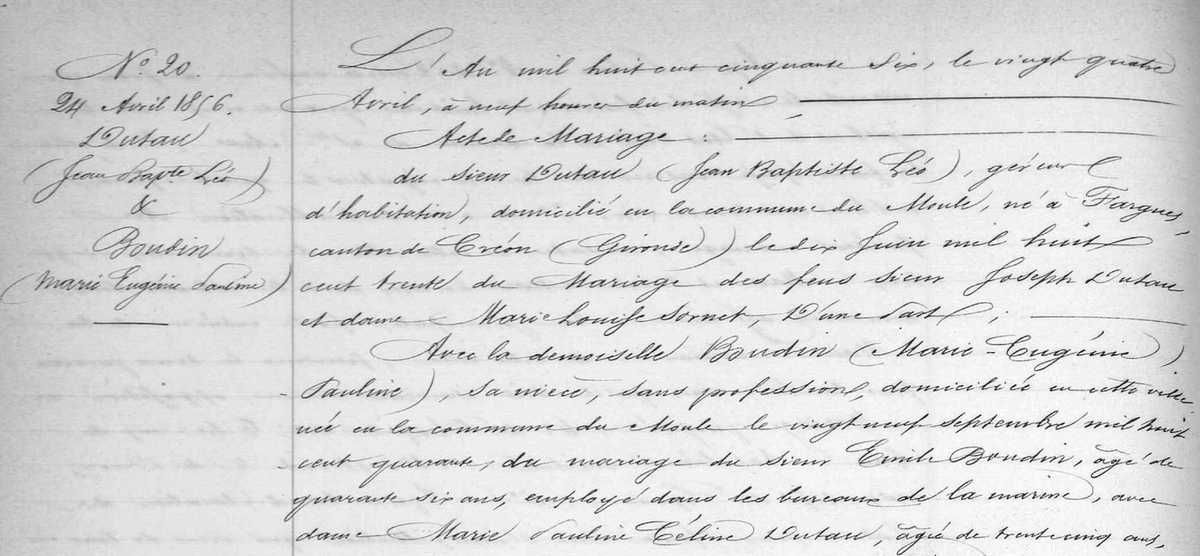 N.o 20.
24 Avril 1856.
Dutau
(Jean Bap.te Léo)
&
Boudin
(Marie Eugénie Pauline)
L'An mil huit cent cinquante six, le vingt quatre
Avril, à neuf heures du matin
Acte de Mariage :
du sieur Dutau (Jean Baptiste Léo), géreur
d'habitation, domicilié en la commune du Moule, né à Fargues,
canton de Créon (Gironde) le dix Juin mil huit
cent trente du Mariage des feus sieur Joseph Dutau
et dame Marie Louise Sornet, D'une part ;
Avec la demoiselle Boudin (Marie-Eugénie
Pauline), sa nièce, sans profession, domiciliée en cette ville
née en la commune du Moule le vingt neuf septembre mil huit
cent quarante, du mariage du sieur Emile Boudin, âgé de
quarante six ans, employé dans les bureaux de la marine, avec
dame Marie Pauline Céline Dutau, âgée de trente cinq ans,